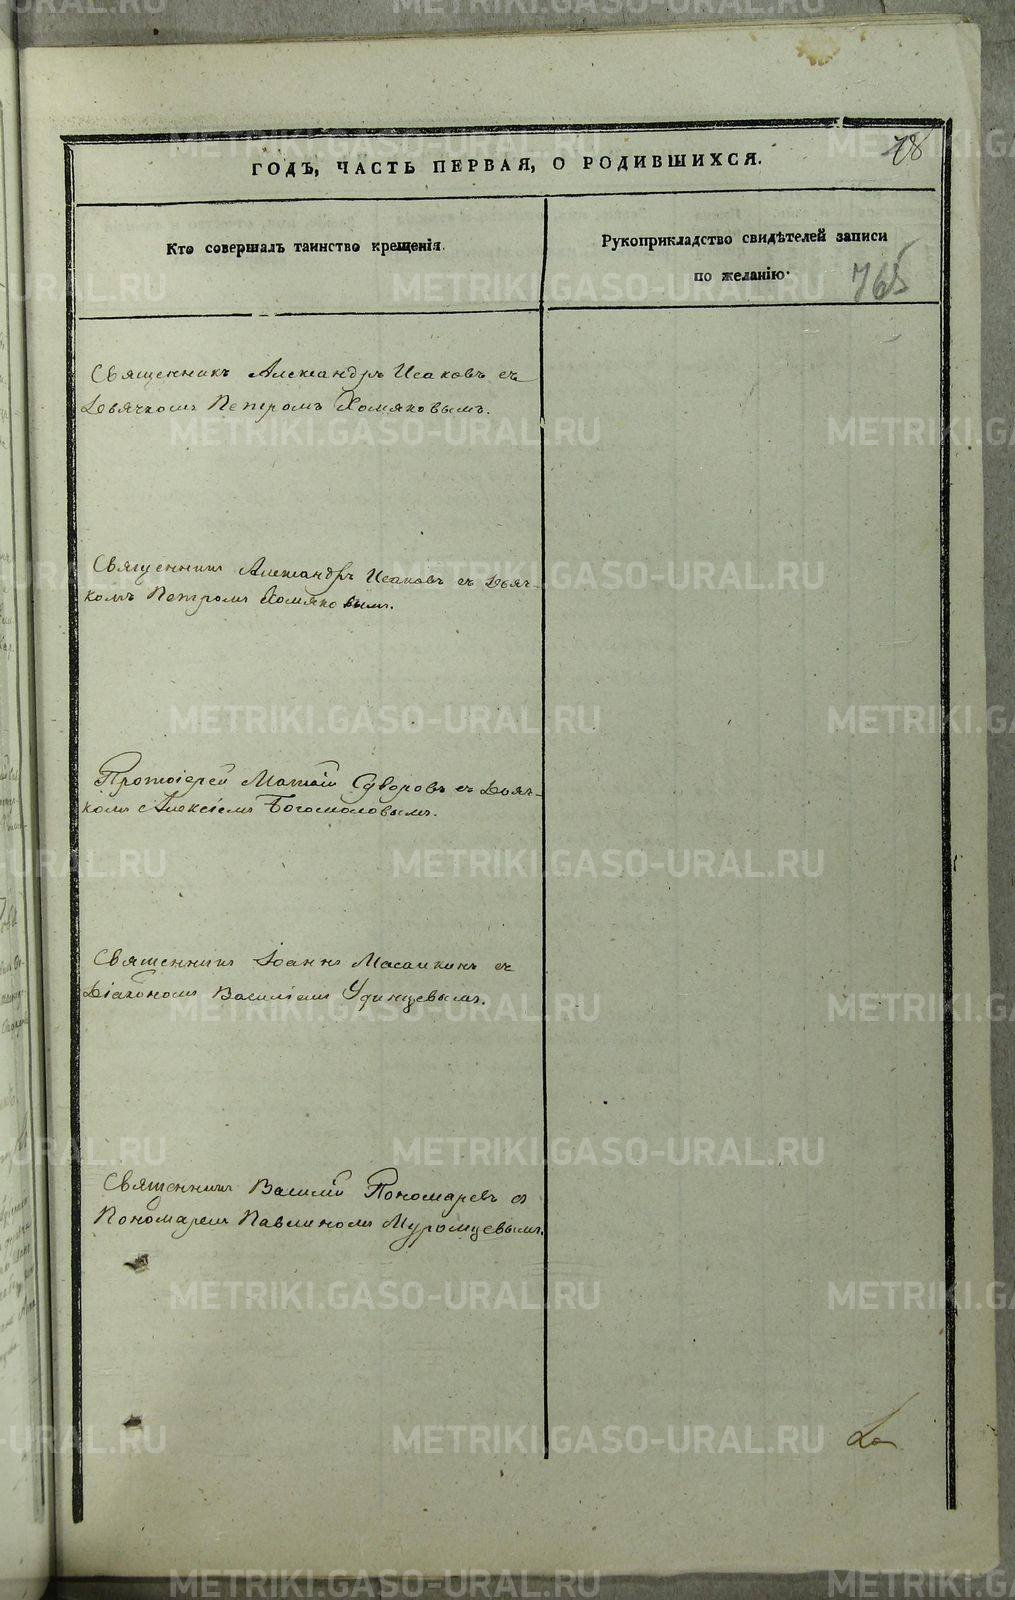 ГОДЪ, ЧАСТЬ ПЕРВАЯ, О РОДИВШИХСЯ.
78
Кто совершалъ таинство крещенія.
Рукоприкладство свидѣтелей записи
по желанію.
765
Священникъ Александръ Исаковъ съ
Дьячкомъ Петромъ Хомяковымъ.
Священникъ Александръ Исаковъ съ Дьяч-
комъ Петромъ Хомяковымъ.
Протоіерей Матѳій Суворовъ съ Дьяч-
комъ Алексіемъ Богомоловымъ.
Священникъ Іоаннъ съ
Діакономъ Василіемъ Удинцевымъ.
Священникъ Василій Пономаревъ съ
Пономаремъ Павлиномъ Муромцевымъ.
METRIKI.GASO-URAL.RU